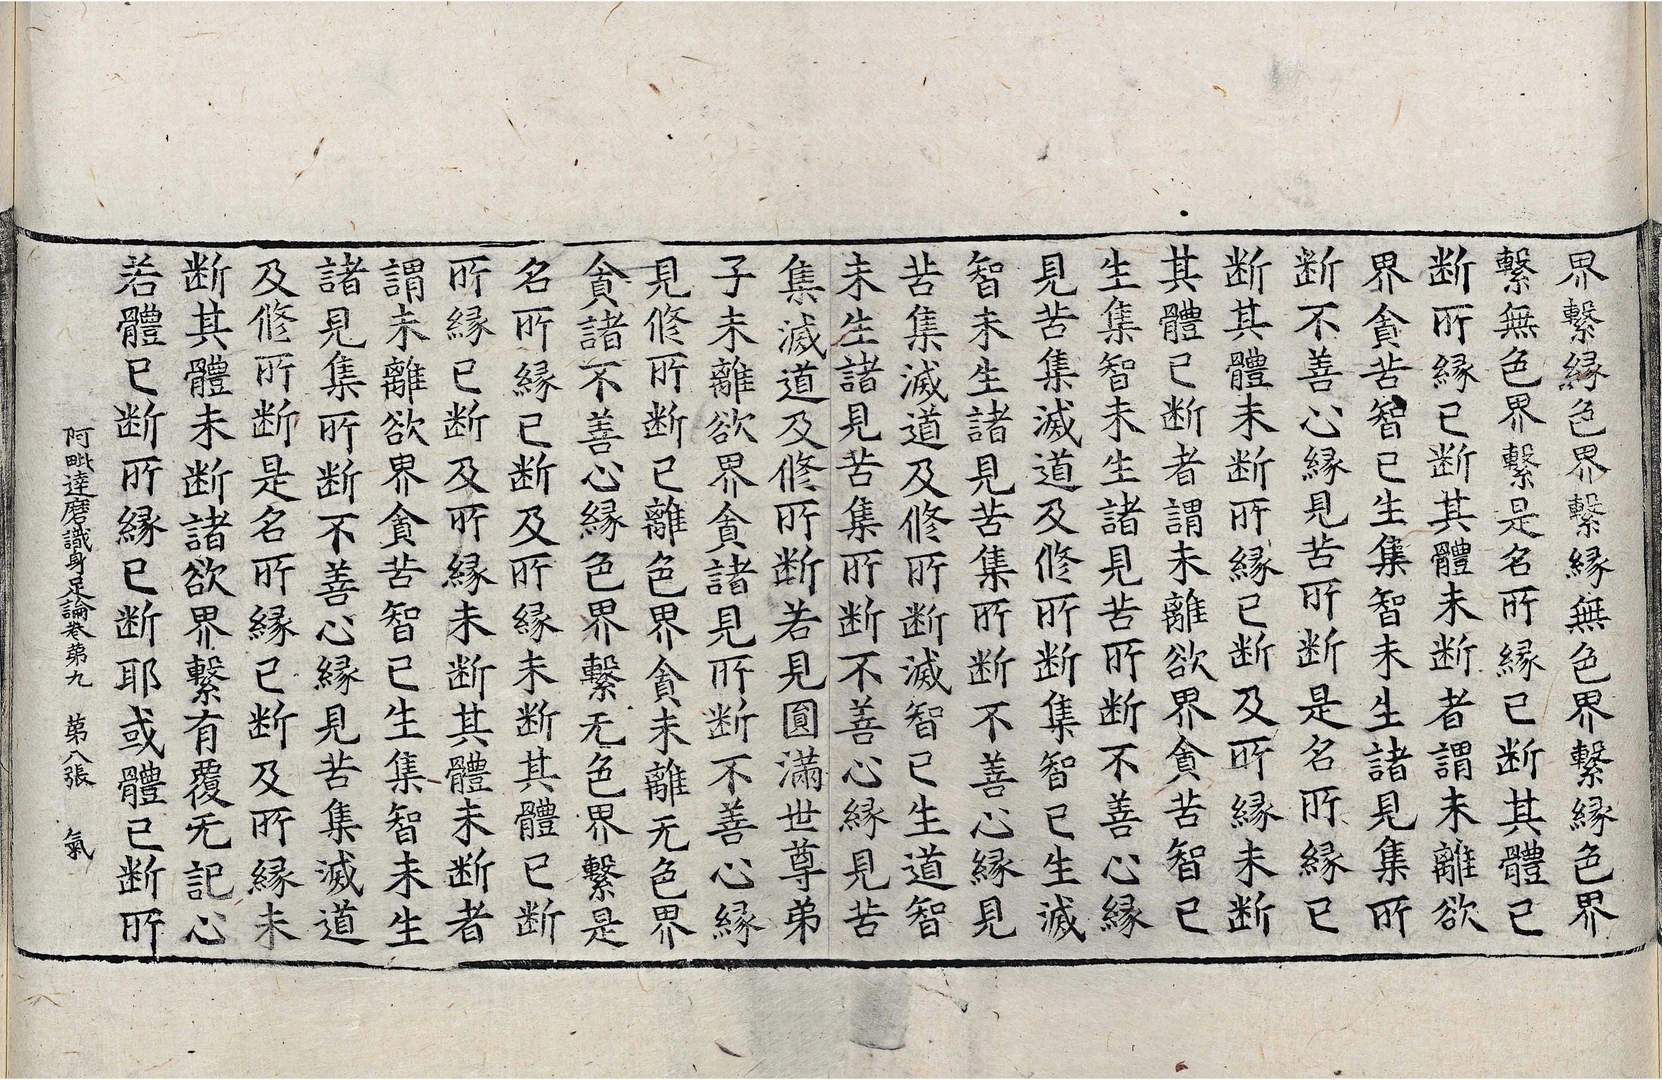 界繫縁色界繫縁無色界繫縁色界
繫無色界繫是名所縁已断其體已
断所縁已断其體未断者謂未離欲
界貪苦智已生集智未生諸見集所
断不善心縁見苦所断是名所縁已
断其體未断所縁已断及所縁未断
其體已断者謂未離欲界貪苦智已
生集智未生諸見苦所断不善心縁
見苦集滅道及修所断集智已生滅
智未生諸見苦集所断不善心縁見
苦集滅道及修所断滅智已生道智
未生諸見苦集所断不善心縁見苦
集滅道及修所断若見圓滿世尊弟
子未離欲界貪諸見所断不善心縁
見修所断已離色界貪未離无色界
貪諸不善心縁色界繫无色界繫是
名所縁已断及所縁未断其體已断
所縁已断及所縁未断其體未断者
謂未離欲界貪苦智已生集智未生
諸見集所断不善心縁見苦集滅道
及修所断是名所縁已断及所縁未
断其體未断諸欲界繫有覆无記心
若體已断所縁已断耶或體已断所
阿毗達磨識身足論卷第九　第八張　氣